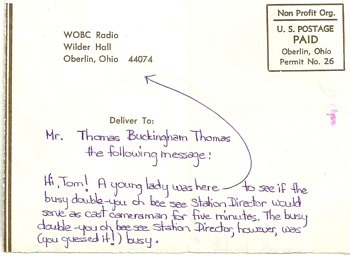 WOBC Radio
Wilder Hall
Oberlin, Ohio 44074
Non Profit Org.
U. S. POSTAGE
PAID
Oberlin, Ohio
Permit No. 26
Deliver To:
Mr. Thomas Buckingham Thomas
the following message:
Hi, Tom! A young lady was here to see if the
busy double-you oh bee see Station Director would
serve as cast cameraman for five minutes. The busy
double-you oh bee see Station Director, however, was
(you guessed it!) busy.